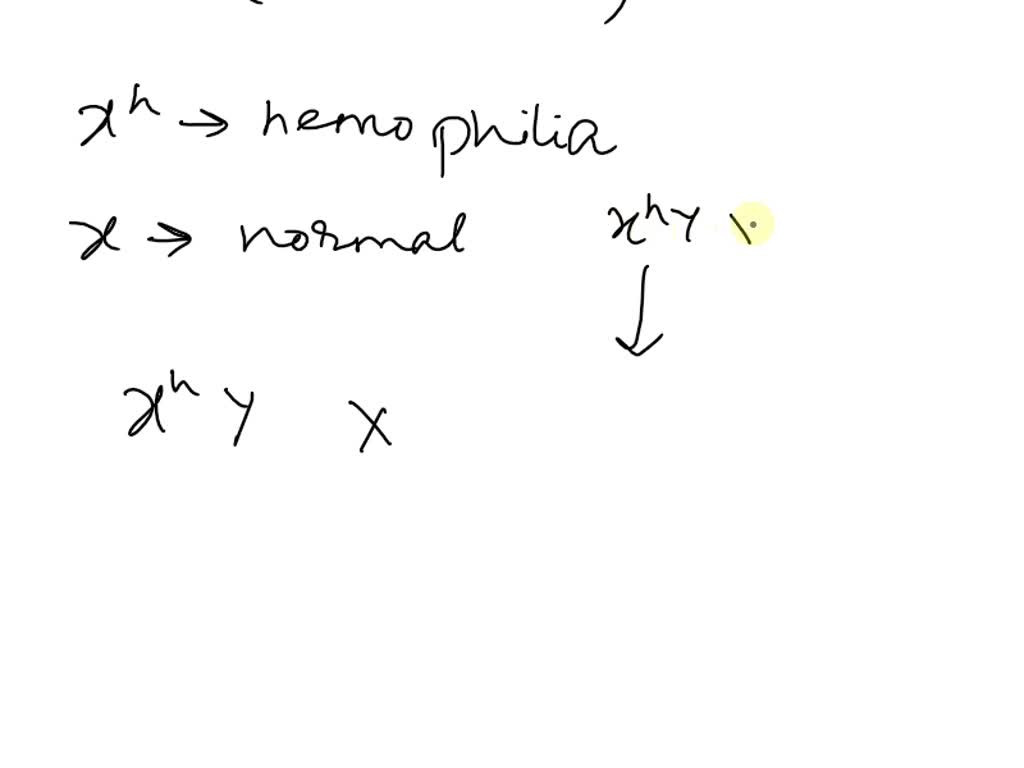 xʰ → hemophilia
x → normal
xʰY
xʰ Y X